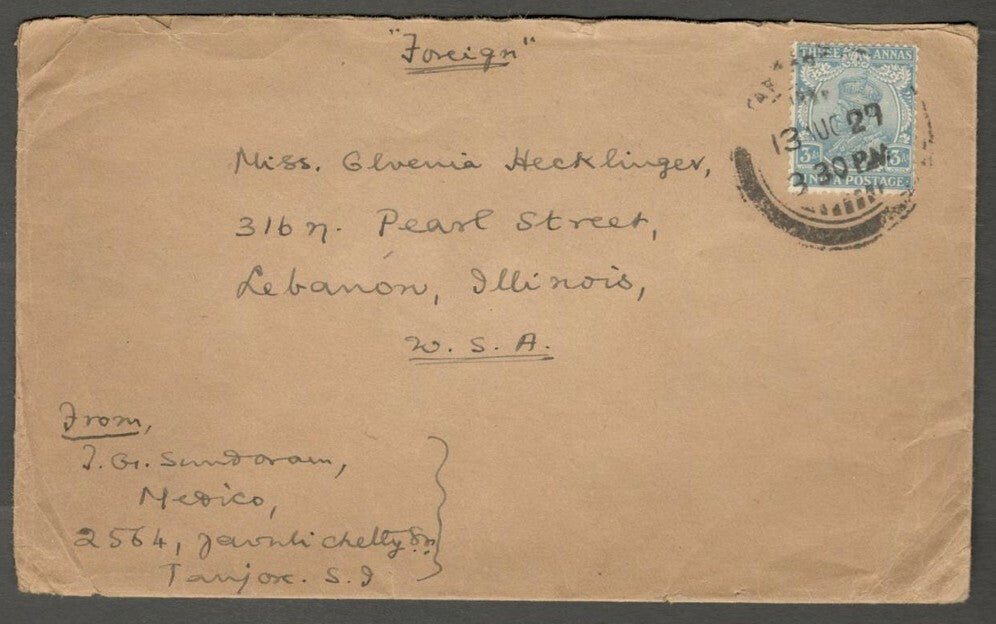 "Foreign"
THREE ANNAS
13 AUG 29
3 30 PM
3A 3A
INDIA POSTAGE
Miss. Glvenia Hecklinger,
316 N. Pearl Street,
Lebanon, Illinois,
U. S. A.
From,
T. G. Sundaram,
Medico,
2564, Javulichetty St.
Tanjore. S. I